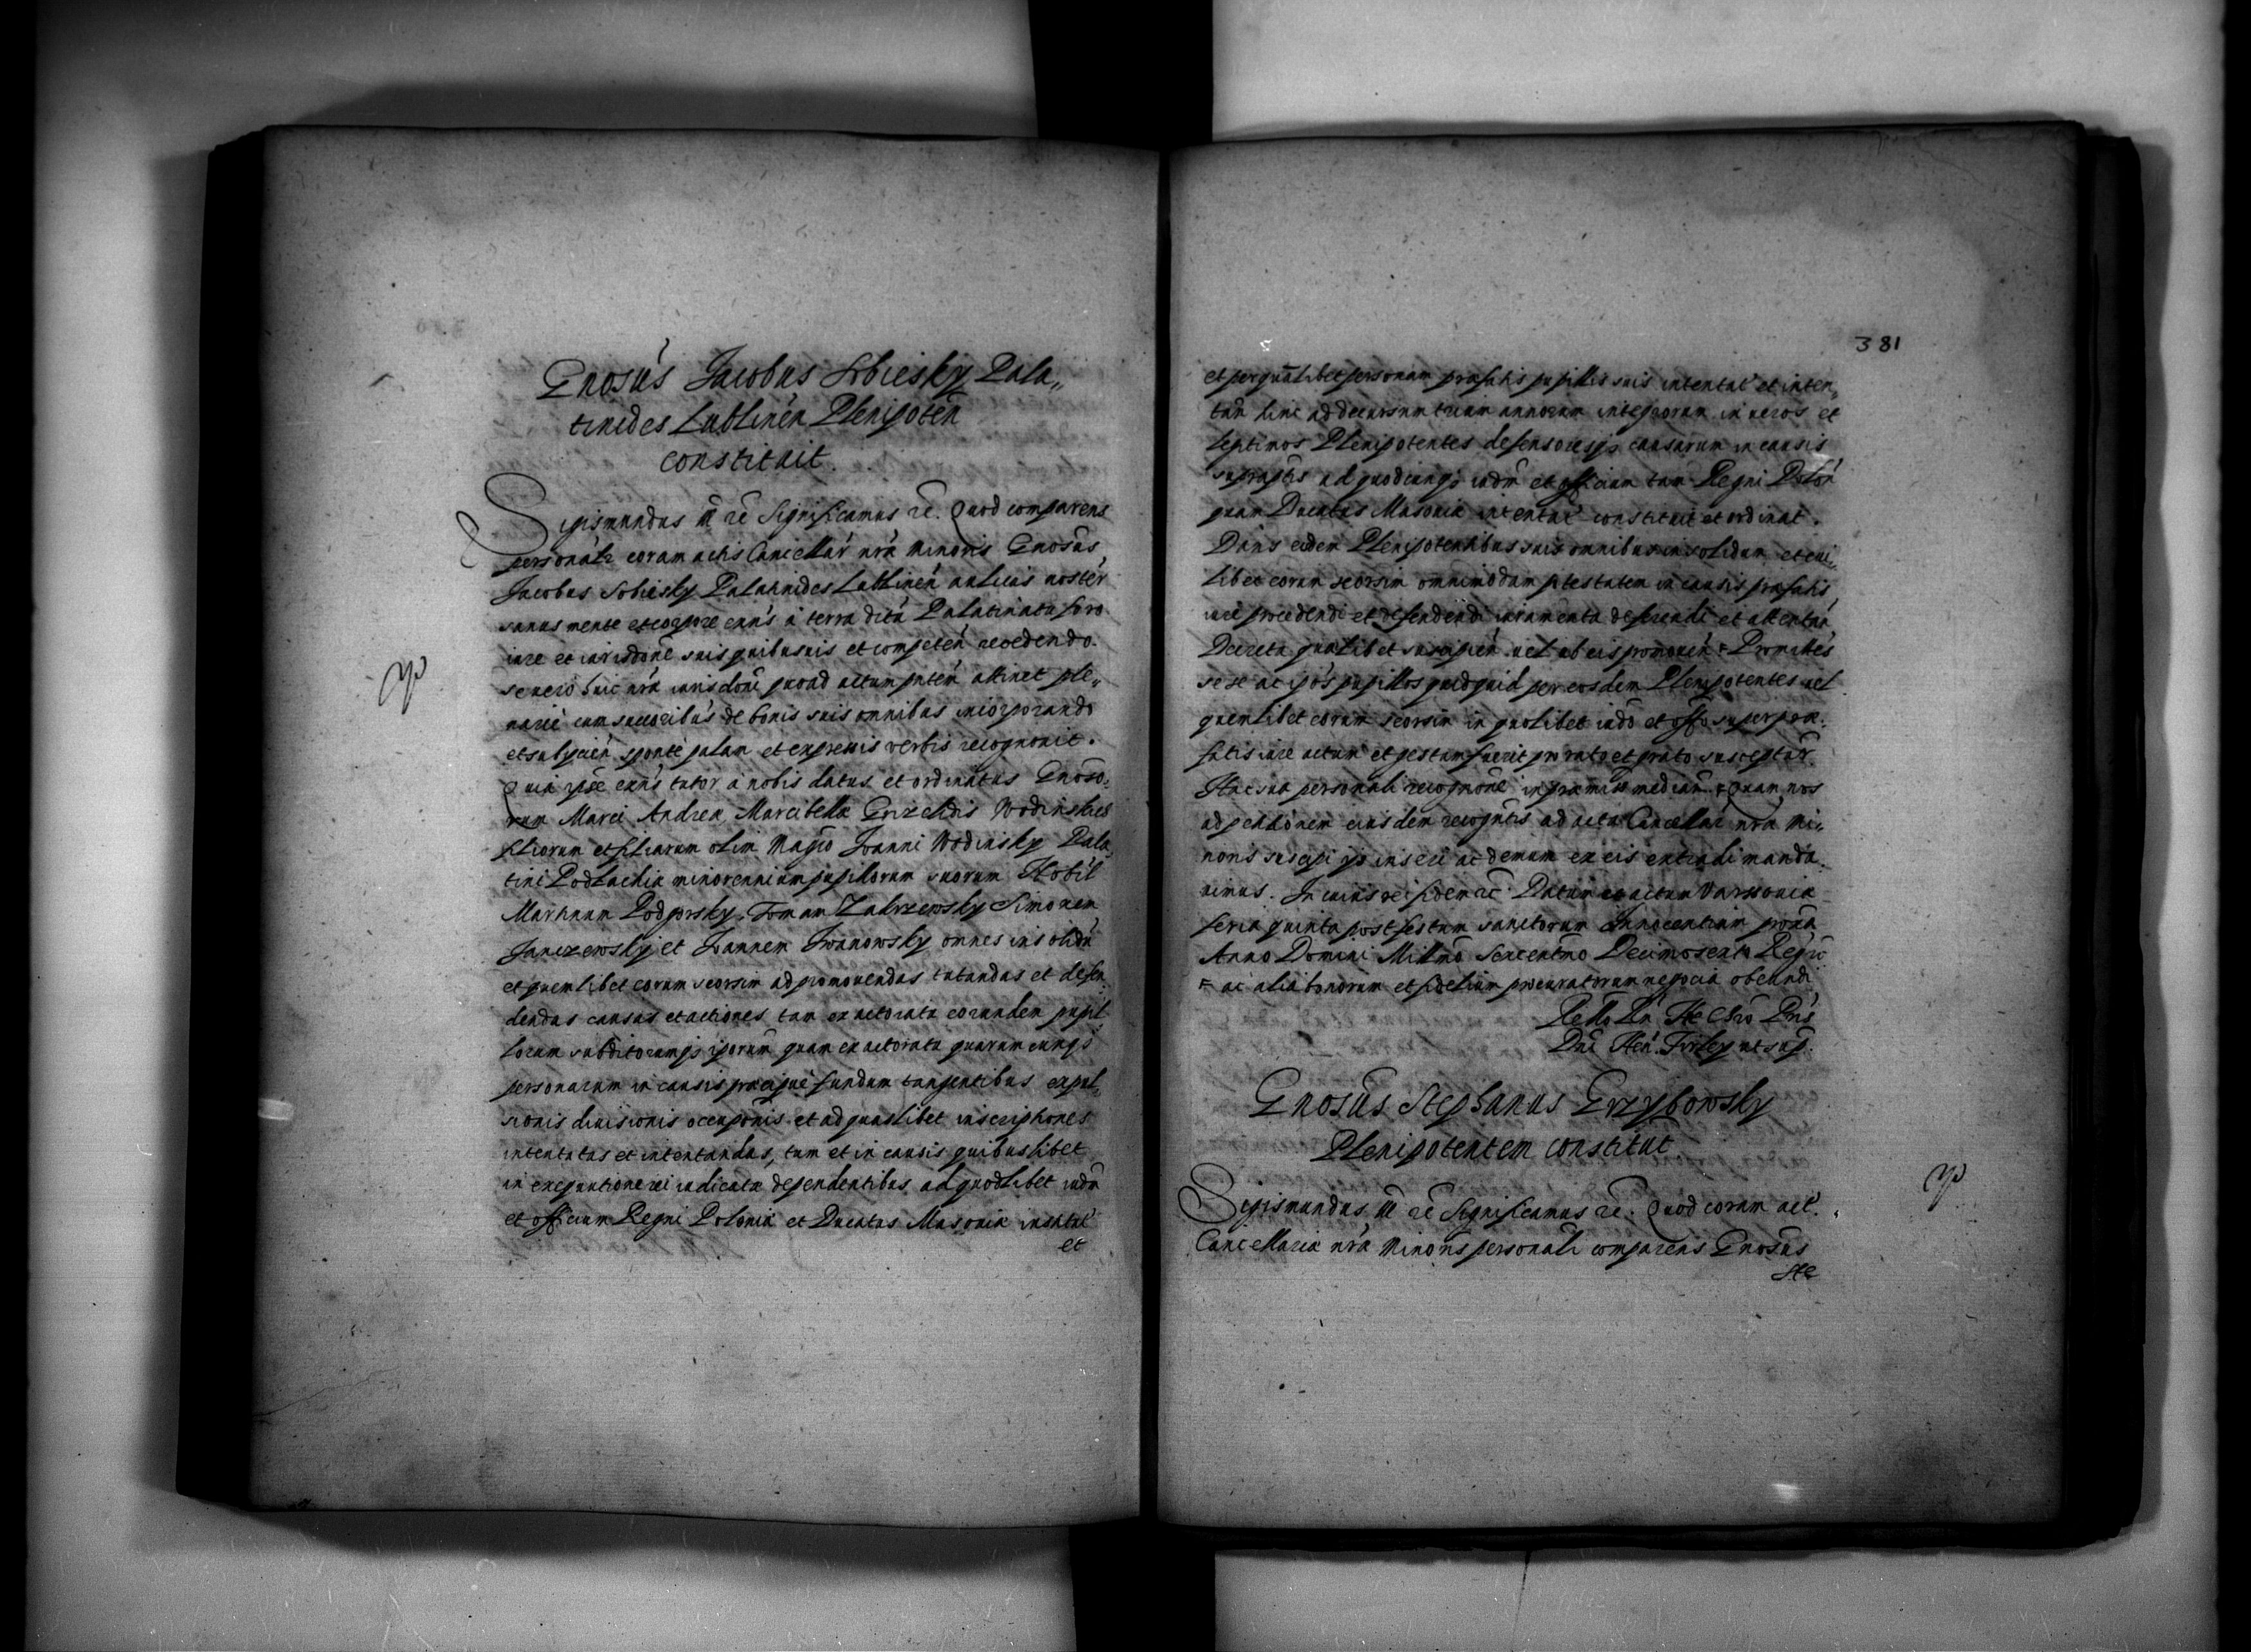 Gnosus Jacobus Sobiesky Pala„
tinides Lublinen Plenipoten
constituit.
Sigismundus III rc Significamus rc. Quod comparens
personalr coram actis Cancellar nra Minoris Gnosus
Jacobus Sobiesky Palatinides Lublinen aulicus noster
sanus mente et corpore exns a terra dictu Palatinatu foro
iure et iurisdone suis quibusuis et competen recedendo.
se uero huic nra iurisdoni quoad actum pnten attinet ple„
narie cum succoribus de bonis suis omnibus incorporando
et subyciens sponte palam et expressis verbis recognouit.
Quia ipse exns tutor a nobis datus et ordinatus Gnoso„
rum Marci Andrea Marcibella Grizeldis Wodinskich
filiorum et filiarum olim Magco Joanni Wodinsky Pala„
tini Podlachia minorennium pupillorum suorum Nobil
Martinum Podgorsky. Toman Zakrzewsky Simonem
Janczewsky et Joannem Iwanowsky omnes insolidu
et quemlibet eorum seorsim ad promouendas tutandas et defen„
dendas causas et actiones tam ex actoratu eorundem pupil„
lorum subditorumq3 iporum quam ex actoratu quarumcunq3
personarum in causis pracipue fundum tangentibus expul„
sionis diuisionis occuponis et ad quaslibet inscriptiones
intentatas et intentandas, tum et in causis quibuslibet
in exequutione rei iudicata dependentibus ad quodlibet iudm
et officium Regni Polonia et Ducatus Masouia institut
et
381
et per quamlibet personam prafatis pupillis suis intentat et inten„
tan hinc ad decursum trium annorum integrorum in ueros et
legitimos Plenipotentes defensoresq3 causarum in causis
suprascrtis ad quodcunq3 iudm et officium tam Regni Polon
quam Ducatus Masouia intentat constituit et ordinat.
Dans eidem Plenipotentibus suis omnibus insolidum et cui„
libet eorum seorsim omnimodam potestatem in causis prafatis
iure procedendi et defendendi iuramenta deferendi et attentan
Decreta qualibet suscipien uel ab eis promouen + Promittes
sese ac ipos pupillos quidquid per eosdem Plenipotentes uel
quemlibet eorum seorsim in quolibet iudo et offo super pra„
fatis iure actum et gestum fuerit pro rato et grato suscepturu
Hac sua personali recognone in pramissis median + Quam nos
ad petitionem eiusdem recogntis ad acta Cancellar nra Mi„
noris suscipi et inseri ac demum ex eis extradi manda„
uimus. In cuius rei fidem rc. Datum et actum Varssouia
feria quinta post festum sanctorum Innocentium proxa
Anno Domini Millmo Sexcentmo Decimosexto Regno
+ ac alia bonorum et fidelium procuratorum negocia obeundi
Dni Hen. Firley ut sup.
Gnosus Stephanus Grzybowsky
Plenipotentem constituit.
Sigismundus III rc Significamus rc. Quod coram act.
Cancellaria nra Minoris personalr comparens Gnosus
Ste